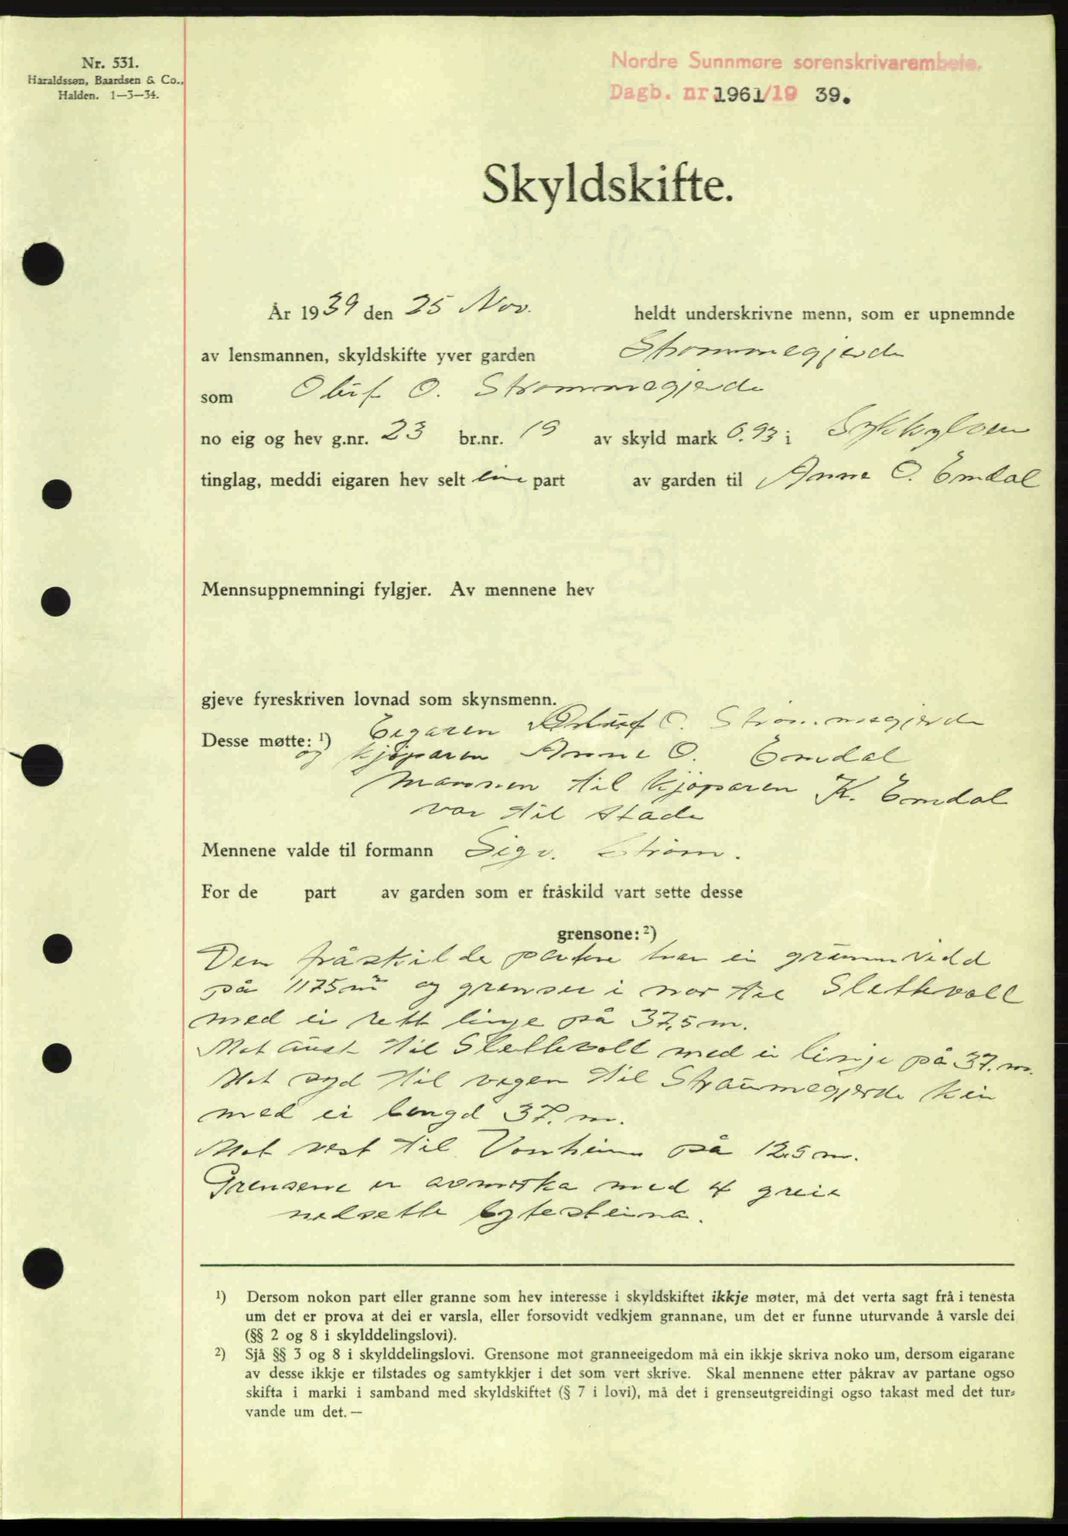 Nr. 531.
Haraldssøn, Baardsen & Co.,
Halden. 1—3—34.
Nordre Sunnmøre sorenskrivarembete.
Dagb. nr. 1961/19 39.
Skyldskifte.
År 1939 den 25 Nov. heldt underskrivne menn, som er upnemnde
av lensmannen, skyldskifte yver garden Strømmegjerde
som Oluf O. Strømmegjerde
no eig og hev g.nr. 23 br.nr. 19 av skyld mark 0.93 i Sykkylven
tinglag, meddi eigaren hev selt ein part av garden til Anne O. Emdal
Mennsuppnemningi fylgjer. Av mennene hev
gjeve fyreskriven lovnad som skynsmenn.
Desse møtte: ¹) Eigaren Oluf O. Strømmegjerde
og kjøparen Anne O. Emdal
Mannen til kjøparen K. Emdal
var til stade
Mennene valde til formann Sigv. Strøm.
For de part av garden som er fråskild vart sette desse
grensone: ²)
Den fråskilde parten har ei grunnvidd
på 1175 m² og grenser i nor til Slettevoll
med ei rett linje på 37,5 m.
Mot aust til Slettevoll med ei linje på 37. m.
Mot syd til vegen til Straumegjerde
med ei lengd 37. m.
Mot vest til Vonheim på m.
Grensene er avmerka med 4 greie
nedsette bytesteina.
¹) Dersom nokon part eller granne som hev interesse i skyldskiftet ikkje møter, må det verta sagt frå i tenesta
um det er prova at dei er varsla, eller forsovidt vedkjem grannane, um det er funne uturvande å varsle dei
(§§ 2 og 8 i skylddelingslovi).
²) Sjå §§ 3 og 8 i skylddelingslovi. Grensone mot granneeigedom må ein ikkje skriva noko um, dersom eigarane
av desse ikkje er tilstades og samtykkjer i det som vert skrive. Skal mennene etter påkrav av partane ogso
skifta i marki i samband med skyldskiftet (§ 7 i lovi), må det i grenseutgreidingi ogso takast med det tur-
vande um det. —